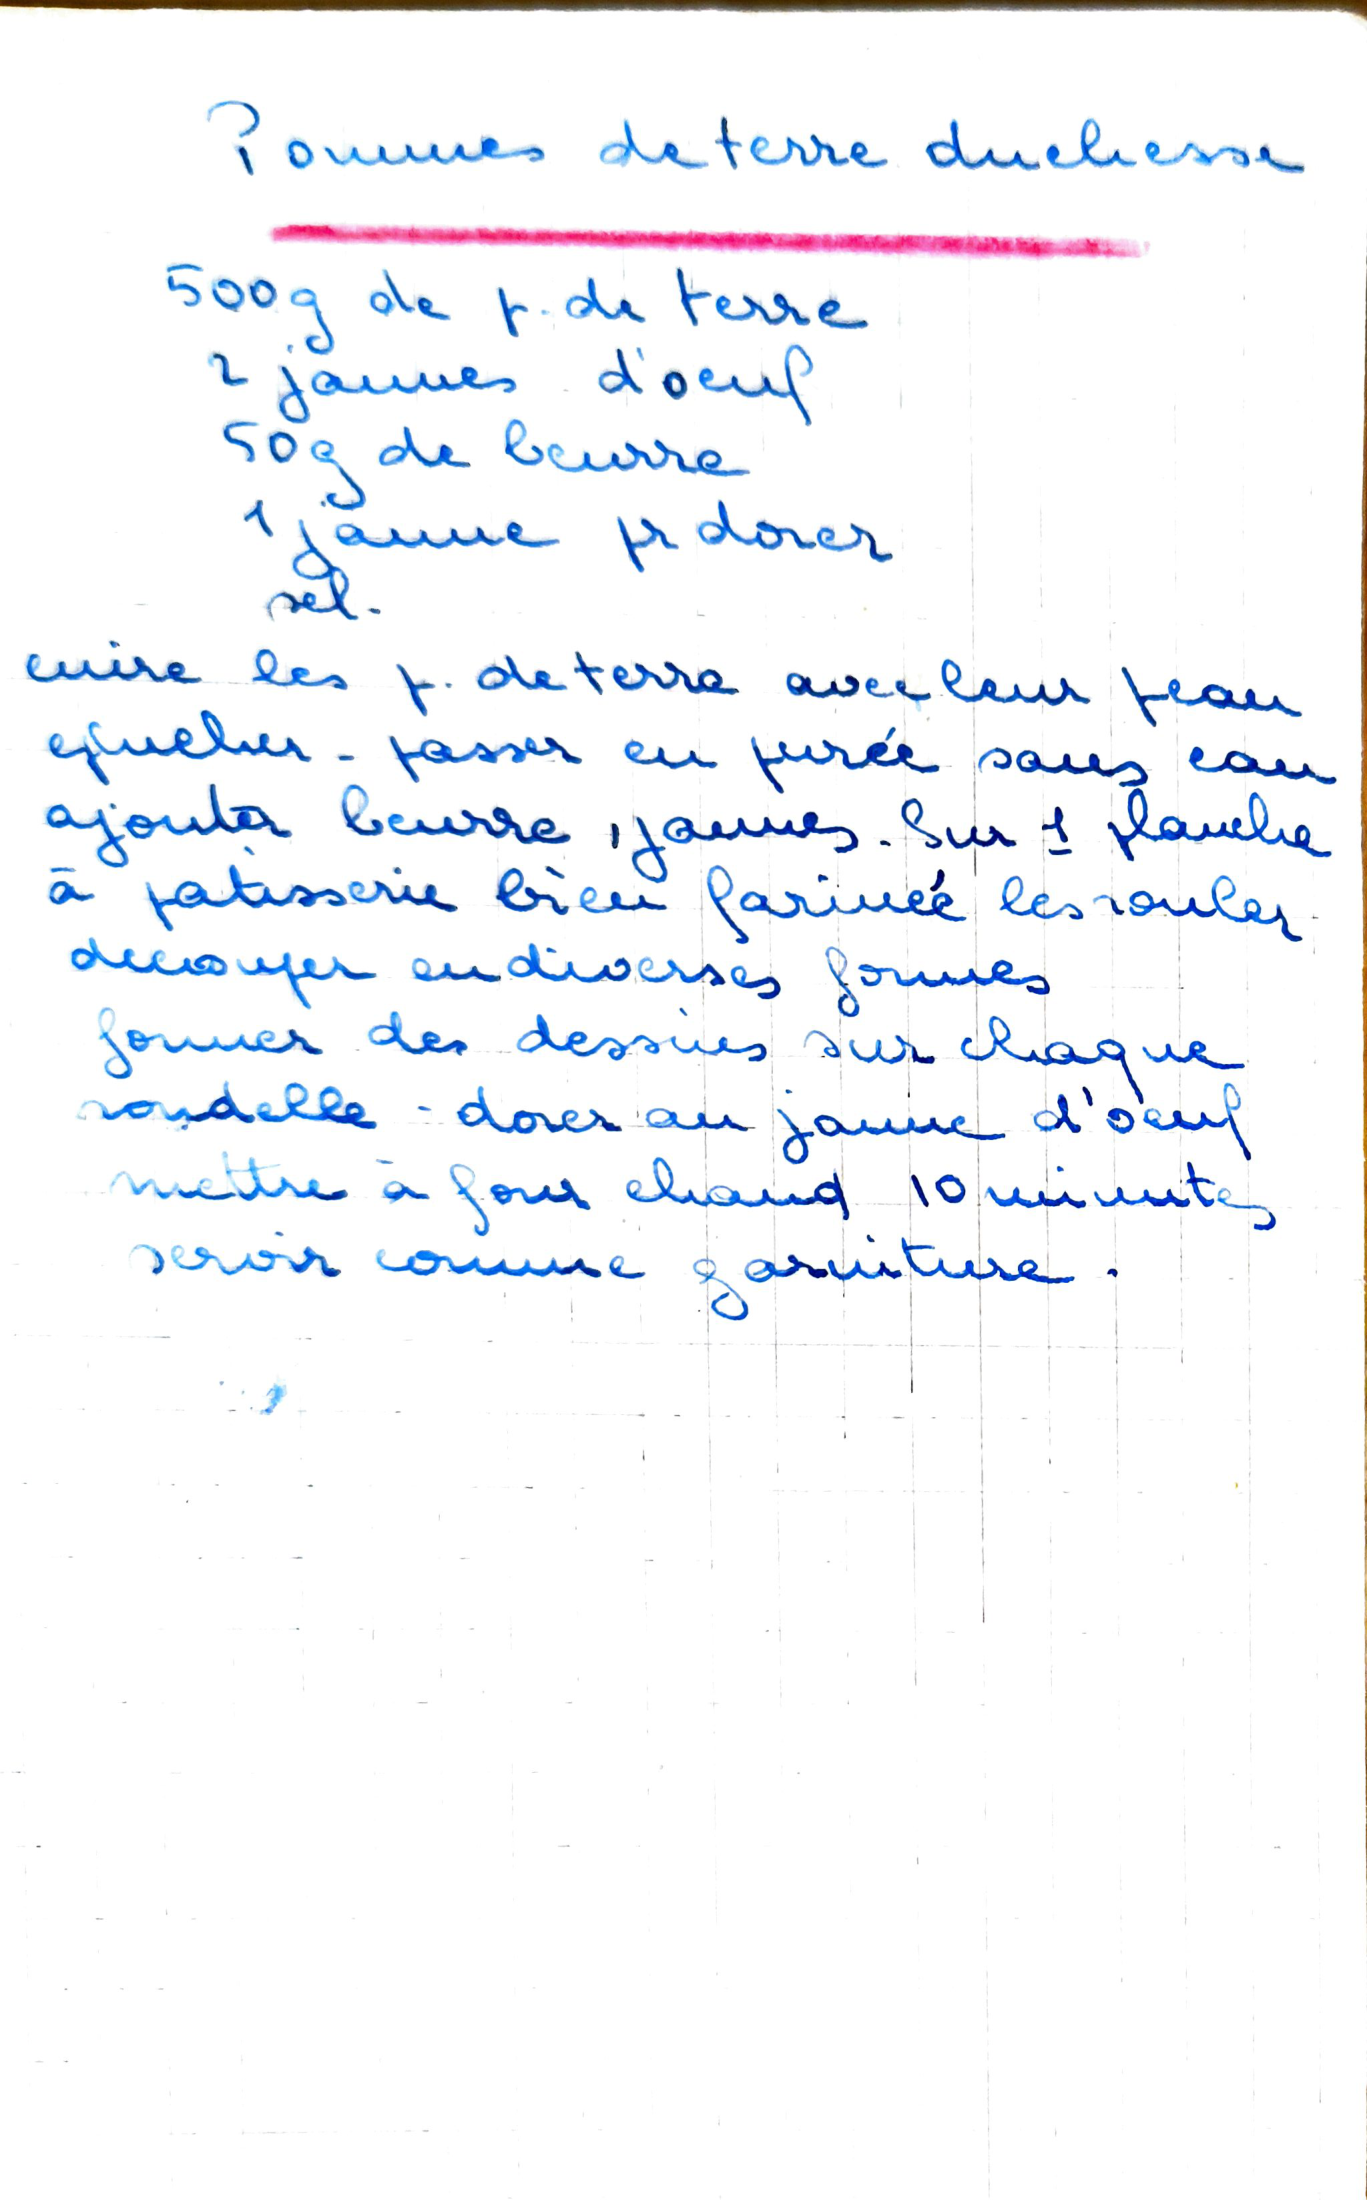 Pommes de terre duchesse
500g de p. de terre
2 jaunes d'oeuf
50g de beurre
1 jaune pr dorer
sel.
cuire les p. de terre avec leur peau
eplucher - passer en purée sans eau
ajouter beurre, jaunes. Sur 1 planche
à patisserie bien farinée les rouler
decouper en diverses formes
former des dessins sur chaque
rondelle - dorer au jaune d'oeuf
mettre à four chaud 10 minutes
servir comme garniture.